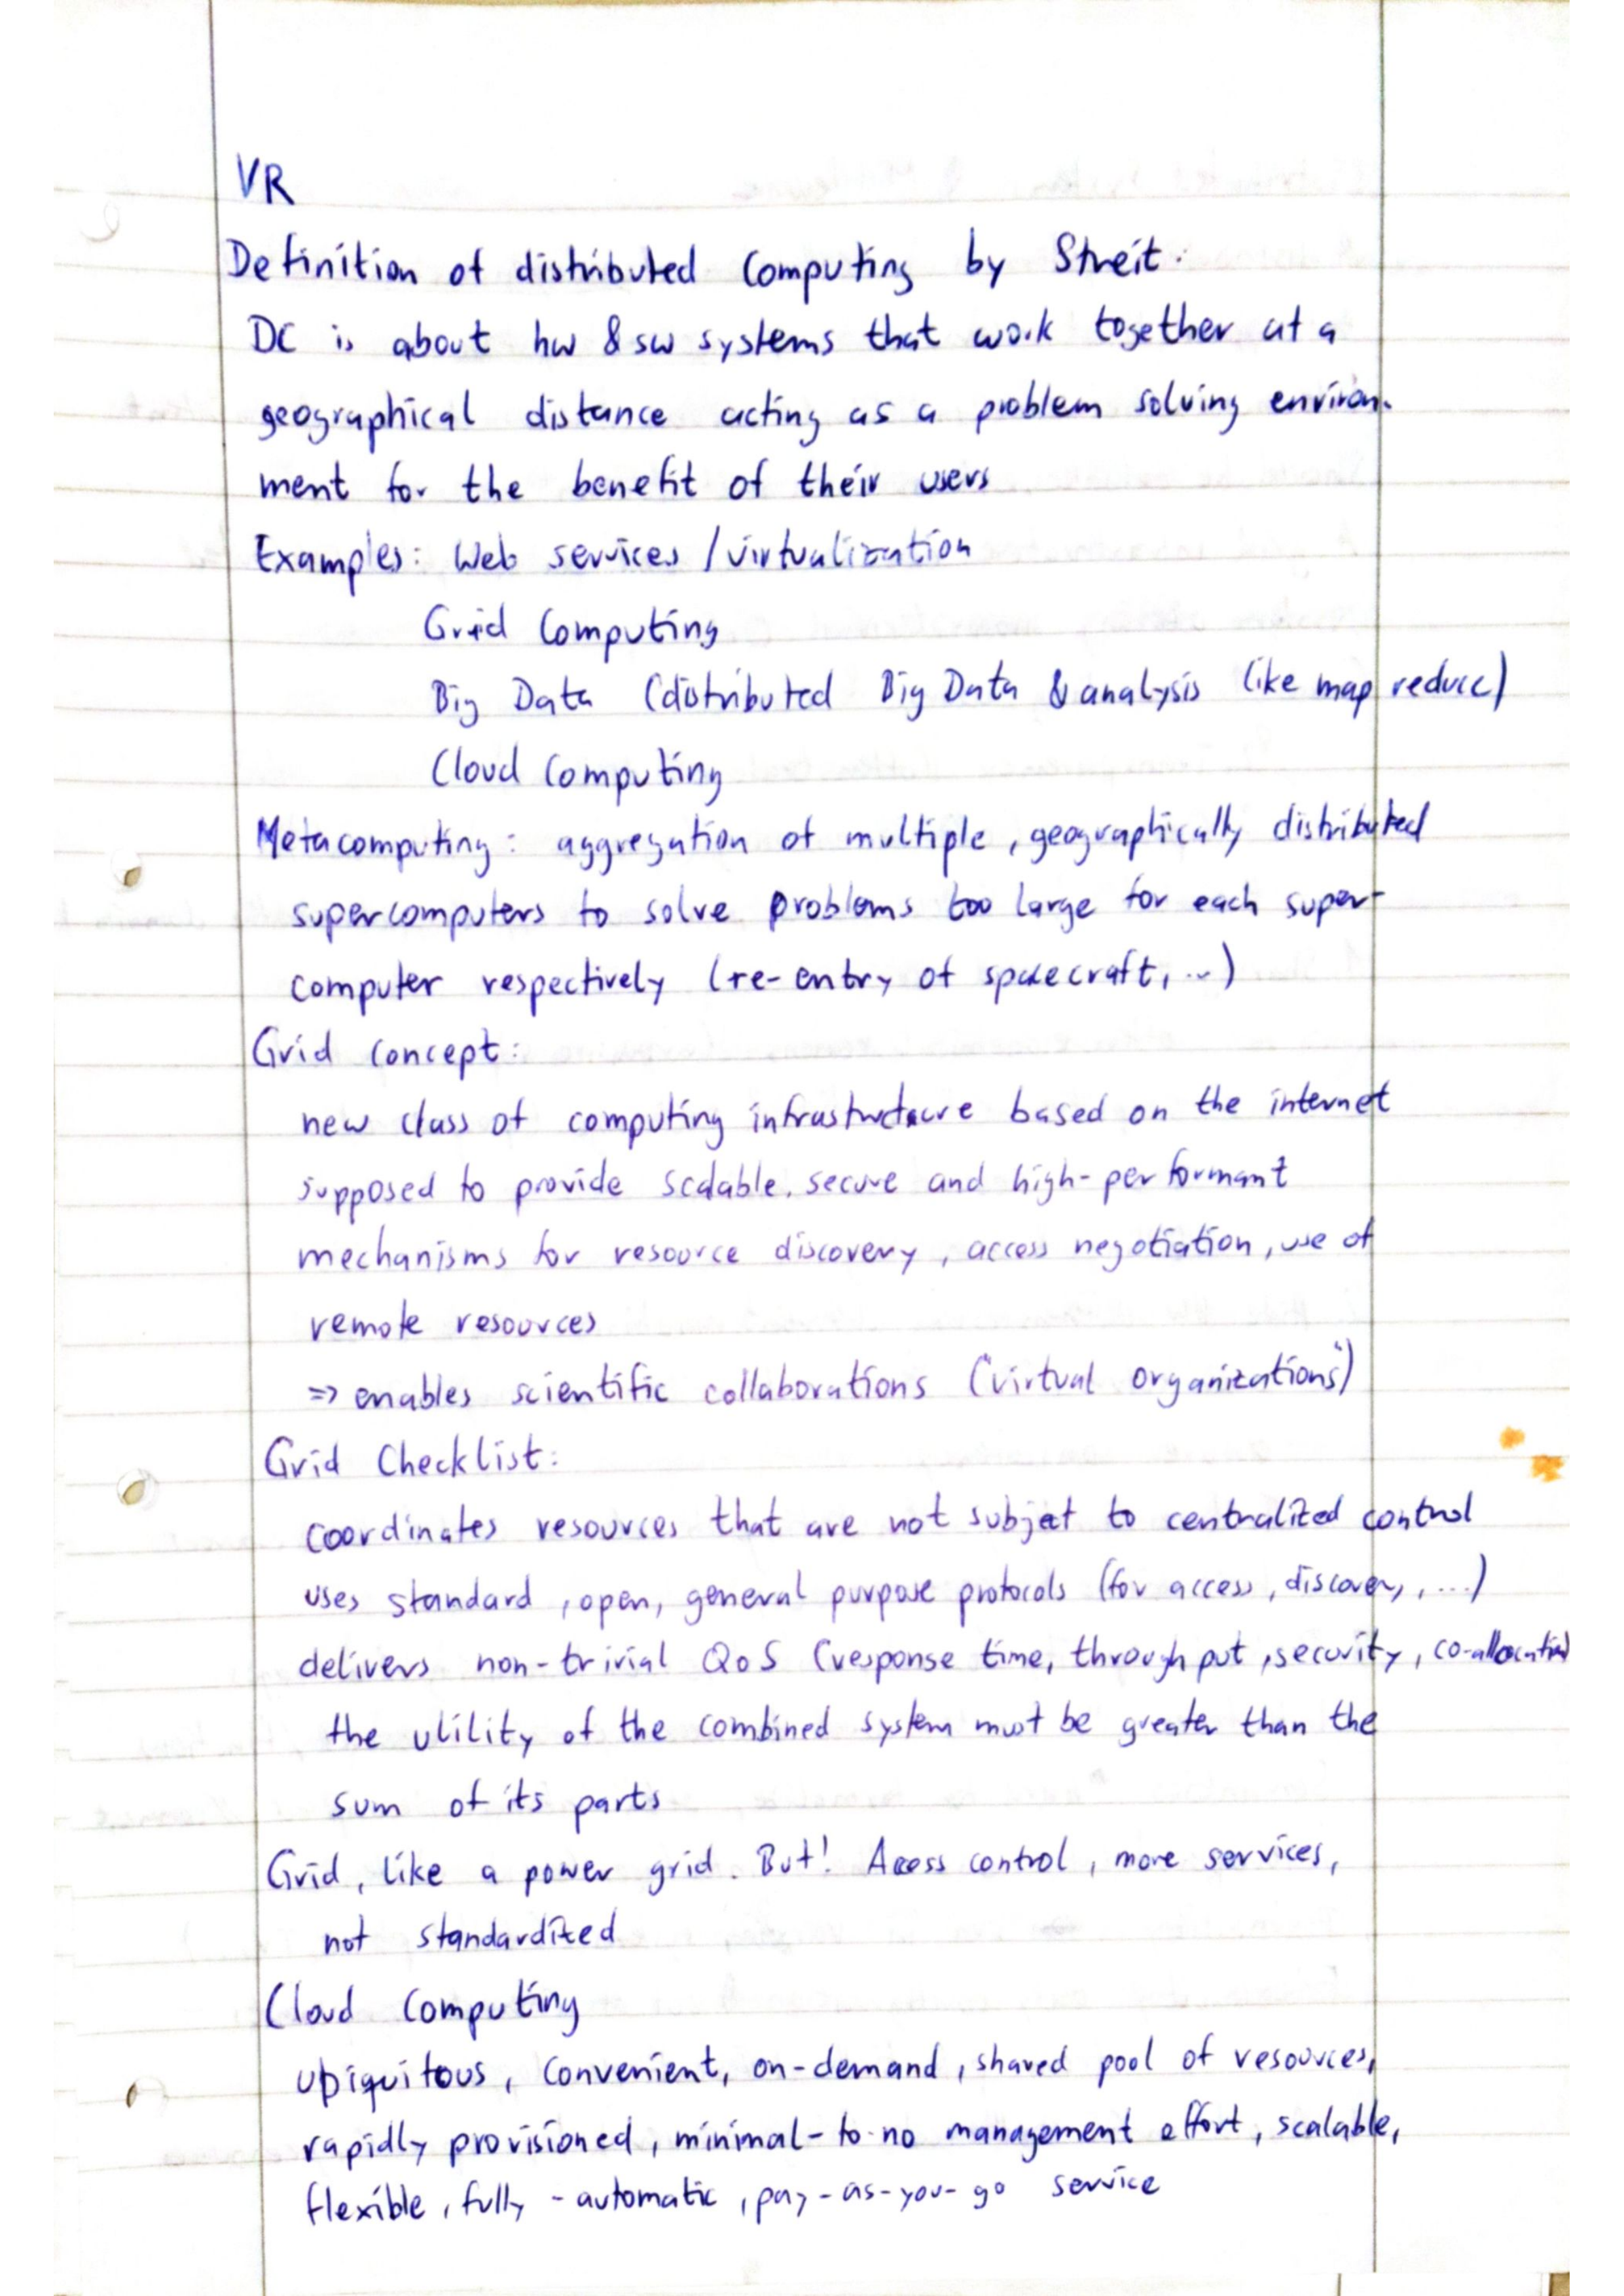 VR
Definition of distributed Computing by Streit:
DC is about hw & sw systems that work together at a
geographical distance acting as a problem solving environ-
ment for the benefit of their users
Examples: Web services / virtualization
Grid Computing
Big Data (distributed Big Data & analysis like map reduce)
Cloud Computing
Metacomputing: aggregation of multiple, geographically distributed
supercomputers to solve problems too large for each super-
computer respectively (re-entry of spacecraft, ...)
Grid concept:
new class of computing infrastructure based on the internet
supposed to provide scalable, secure and high-performant
mechanisms for resource discovery, access negotiation, use of
remote resources
=> enables scientific collaborations ("virtual organizations")
Grid Checklist:
coordinates resources that are not subject to centralized control
uses standard, open, general purpose protocols (for access, discovery, ...)
delivers non-trivial QoS (response time, throughput, security, co-allocation)
the utility of the combined system must be greater than the
sum of its parts
Grid, like a power grid. But! Access control, more services,
not standardized
Cloud Computing
ubiquitous, convenient, on-demand, shared pool of resources,
rapidly provisioned, minimal-to-no management effort, scalable,
flexible, fully-automatic, pay-as-you-go service